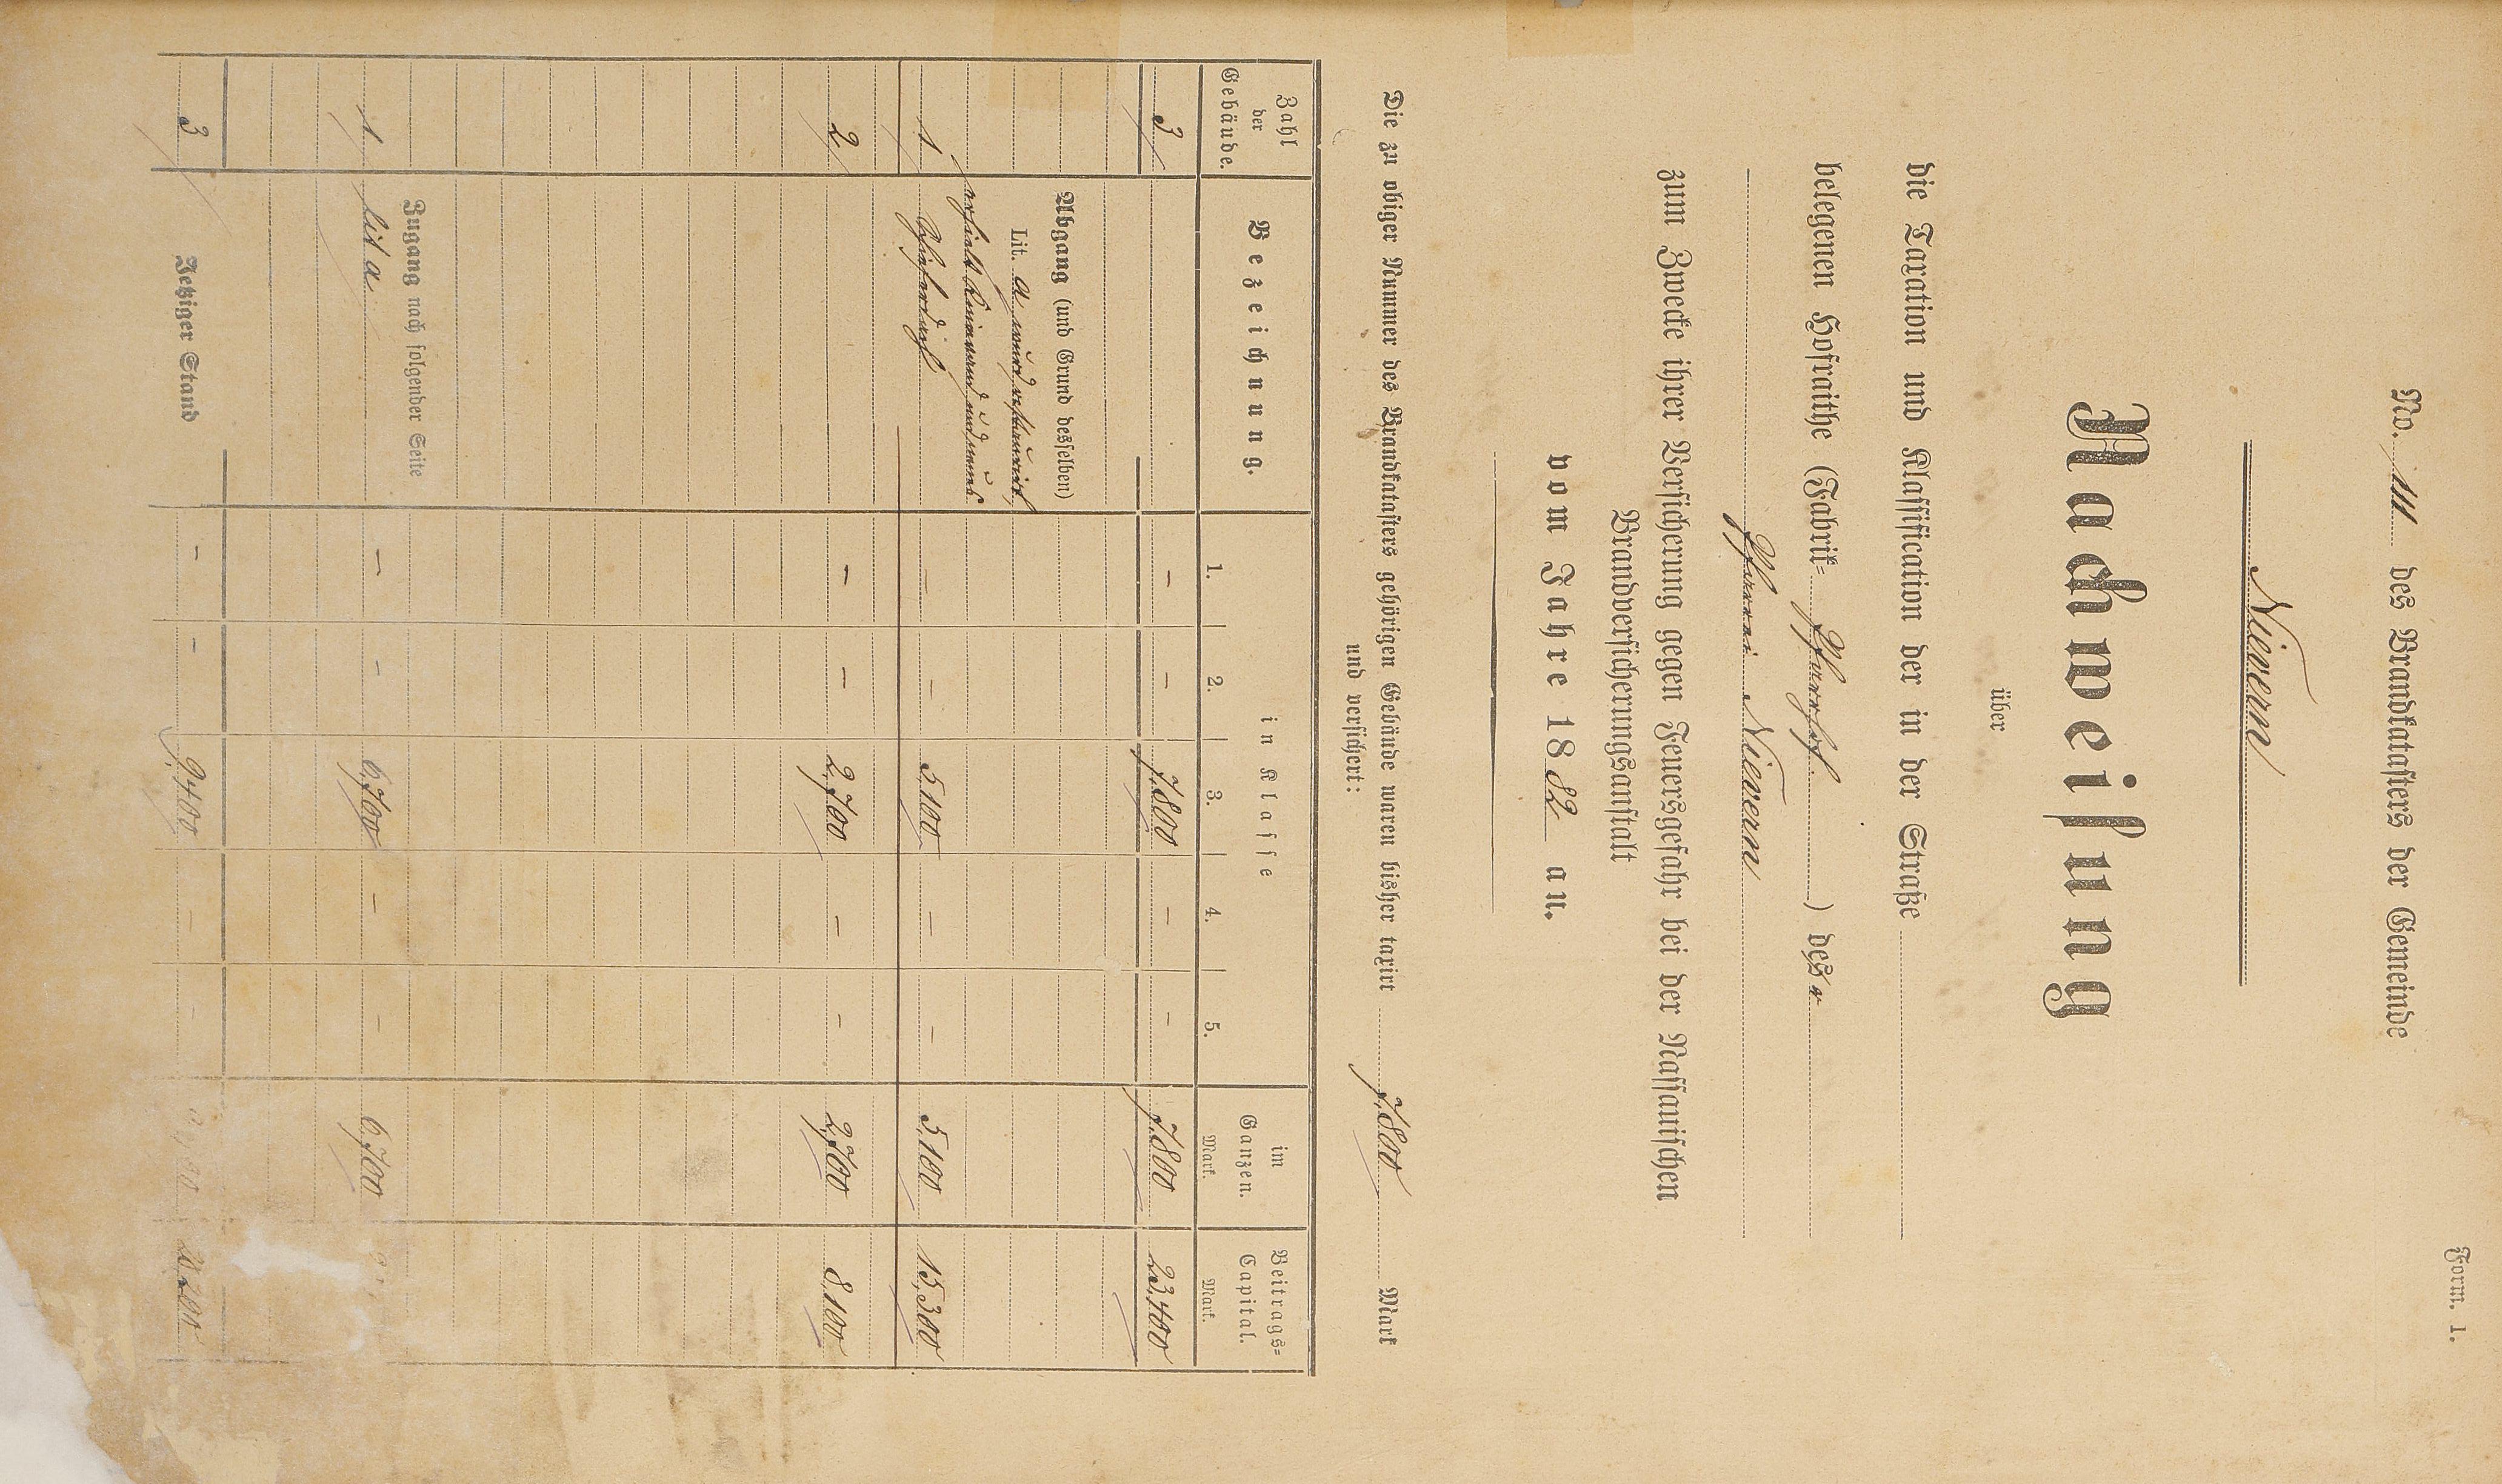 Form. 1.
No. 111 des Brandkatasters der Gemeinde
Nievern
Nachweisung
über
die Taxation und Klassification der in der Straße
belegenen Hofraithe (Fabrik= Pfarrhof ) des r
Pfarrei Nievern
zum Zwecke ihrer Versicherung gegen Feuersgefahr bei der Nassauischen
Brandversicherungsanstalt
vom Jahre 1882 an.
Die zu obiger Nummer des Brandkatasters gehörigen Gebäude waren bisher taxirt 7,800 Mark
und versichert:
Zahl der Gebäude. Bezeichnung. in Klasse im Ganzen. Beitrags= Capital.
1. 2. 3. 4. 5. Mark. Mark.
3 – – 7,800 – – 7,800 23,400
Abgang (und Grund desselben)
Lit. a
1 Schieferdach – – 5,100 – – 5,100 15,300
2 – – 2,700 – – 2,700 8,100
Zugang nach folgender Seite
1 Lit a – – 6,700 – – 6,700
3 Jetziger Stand – – 9,400 – – 28,200